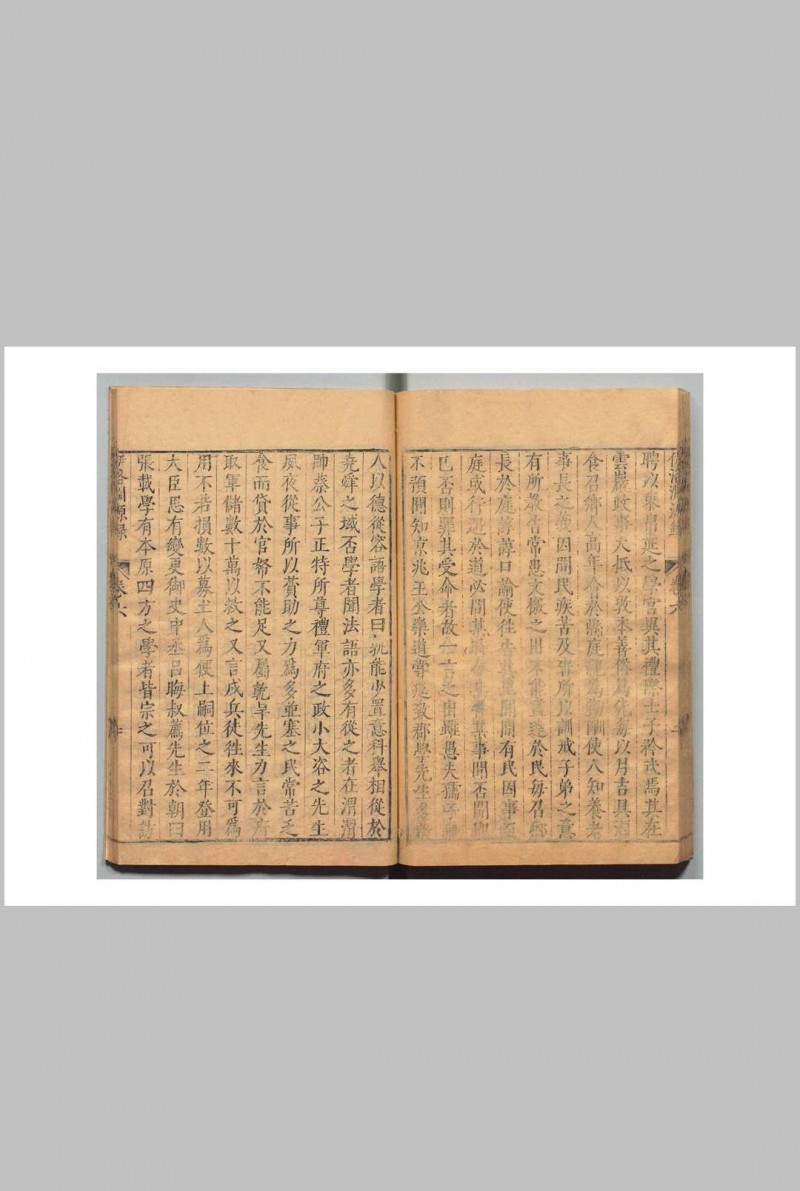 聘以束帛延之學宮異其禮際士子矜式焉其在
雲巖政事大抵以敦本善俗為先每以月吉具酒
食召鄉人高年會於縣庭親為勸酬使人知養老
事長之義因問民疾苦及告所以訓戒子弟之意
有所教告常患文檄之出不能盡達於民每召鄉
長於庭諄諄口諭使往告其里閭間有民因事至
庭或行遇於道必問某時命某告某事聞否聞即
已否則罪其受命者故一言之出雖愚夫孺子無
不預聞知京兆王公樂道嘗延致郡學先生多教
人以德從容語學者曰孰能少置意科舉相從於
堯舜之域否學者聞法語亦多有從之者在渭渭
帥蔡公子正特所尊禮軍府之政小大咨之先生
夙夜從事所以贊助之力為多並塞之民常苦乏
食而貸於官帑不能足又屬亁旱先生力言於府
取軍儲數十萬以救之又言戍兵徒往來不可為
用不若損數以募土人為便上嗣位之二年登用
大臣思有變更御史中丞呂晦叔薦先生於朝曰
張載學有本原四方之學者皆宗之可以召對訪
伊洛淵源錄 卷六